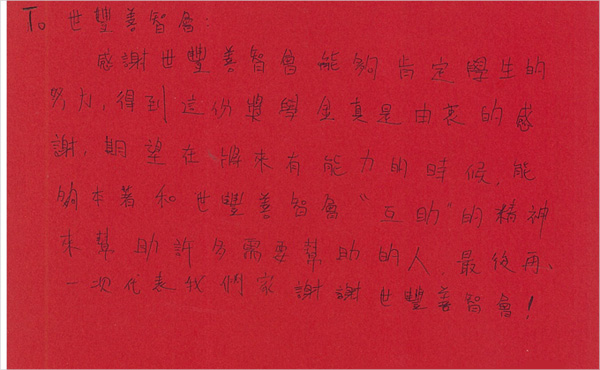 To 世豐善智會:
感謝世豐善智會能夠肯定學生的
努力,得到這份獎學金真是由衷的感
謝,期望在將來有能力的時候,能
夠本著和世豐善智會"互助"的精神
來幫助許多需要幫助的人,最後再、
一次代表我們家謝謝世豐善智會!